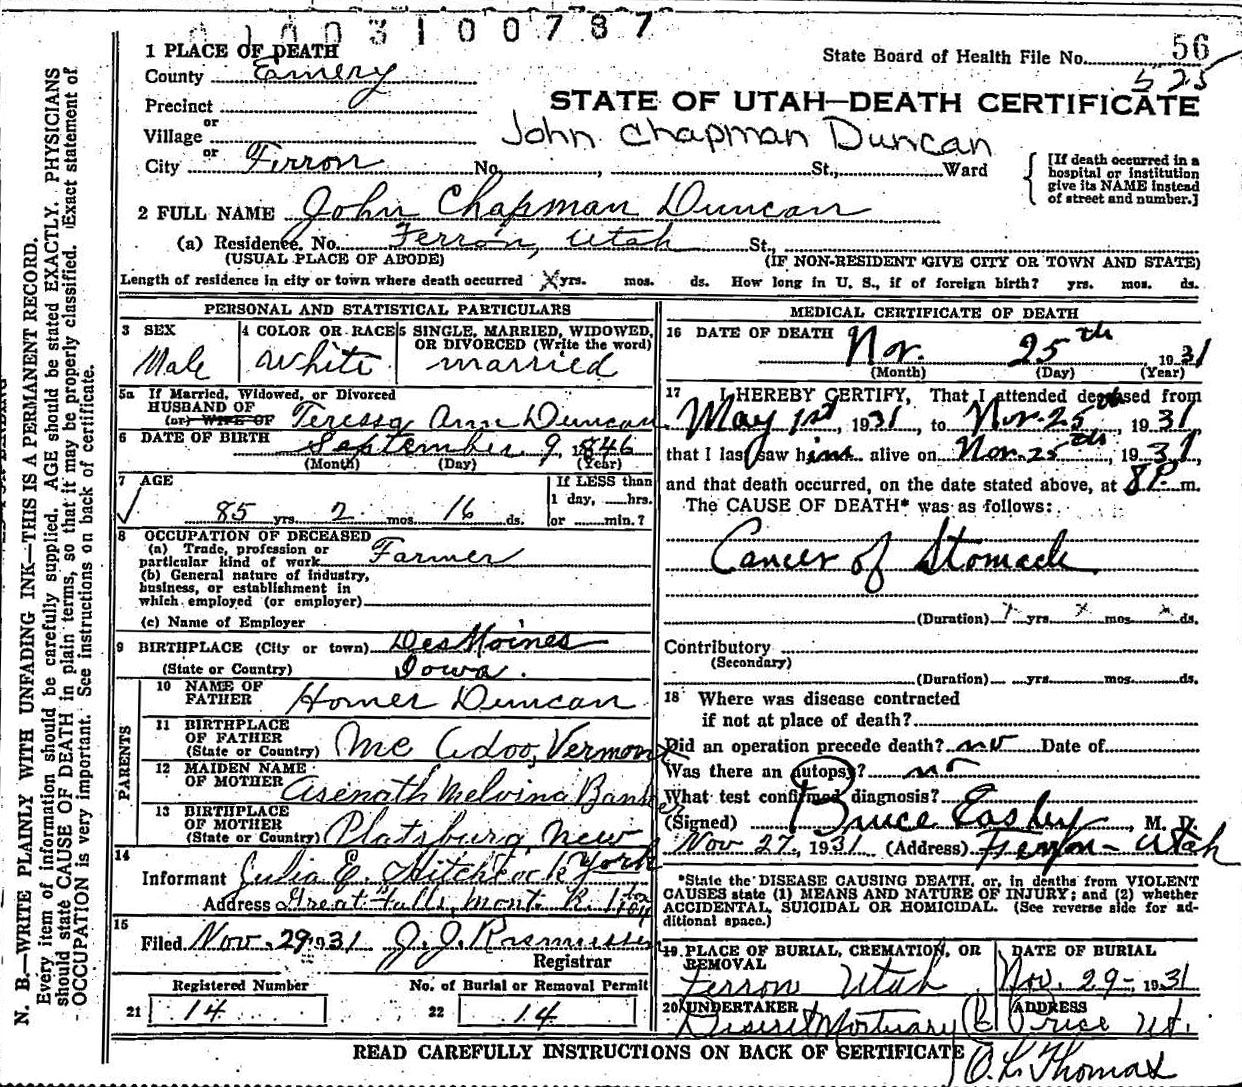 01003100787
1 PLACE OF DEATH
State Board of Health File No. 56
County Emery
525
Precinct
STATE OF UTAH—DEATH CERTIFICATE
or
Village
John Chapman Duncan
or
City Ferron No. , St., Ward
[If death occurred in a
hospital or institution
give its NAME instead
of street and number.]
2 FULL NAME John Chapman Duncan
(a) Residence. No. Ferron, Utah St.,
(USUAL PLACE OF ABODE) (IF NON-RESIDENT GIVE CITY OR TOWN AND STATE)
Length of residence in city or town where death occurred X yrs. mos. ds. How long in U. S., if of foreign birth? yrs. mos. ds.
PERSONAL AND STATISTICAL PARTICULARS
3 SEX 4 COLOR OR RACE 5 SINGLE, MARRIED, WIDOWED,
OR DIVORCED (Write the word)
Male White married
5a If Married, Widowed, or Divorced
HUSBAND OF
(or) WIFE OF Teressa Ann Duncan
6 DATE OF BIRTH September 9, 1846
(Month) (Day) (Year)
7 AGE If LESS than
1 day, hrs.
85 yrs. 2 mos. 16 ds. or min.?
8 OCCUPATION OF DECEASED
(a) Trade, profession or
particular kind of work Farmer
(b) General nature of industry,
business, or establishment in
which employed (or employer)
(c) Name of Employer
9 BIRTHPLACE (City or town) Des Moines
(State or Country) Iowa.
PARENTS
10 NAME OF
FATHER Homer Duncan
11 BIRTHPLACE
OF FATHER
(State or Country) Mc Adoo, Vermont
12 MAIDEN NAME
OF MOTHER Asenath Melvina Banker
13 BIRTHPLACE
OF MOTHER
(State or Country) Platsburg, New
York
14
Informant Julia E. Hitchcock
Address Great Falls, Mont. R. 1
15
Filed Nov. 29, 1931 J. J. Rasmussen
Registrar
Registered Number No. of Burial or Removal Permit
21 14 22 14
MEDICAL CERTIFICATE OF DEATH
16 DATE OF DEATH
Nov. 25th, 1931
(Month) (Day) (Year)
17 I HEREBY CERTIFY, That I attended deceased from
May 1st, 1931, to Nov. 25th, 1931,
that I last saw him alive on Nov. 25th, 1931,
and that death occurred, on the date stated above, at 8P. m.
The CAUSE OF DEATH* was as follows:
Cancer of Stomach
(Duration) yrs. mos. ds.
Contributory
(Secondary)
(Duration) yrs. mos. ds.
18 Where was disease contracted
if not at place of death?
Did an operation precede death? no Date of
Was there an autopsy? no
What test confirmed diagnosis?
(Signed) Bruce Easley, M. D.
Nov 27, 1931 (Address) Ferron - Utah
*State the DISEASE CAUSING DEATH, or, in deaths from VIOLENT
CAUSES state (1) MEANS AND NATURE OF INJURY; and (2) whether
ACCIDENTAL, SUICIDAL OR HOMICIDAL. (See reverse side for ad-
ditional space.)
19 PLACE OF BURIAL, CREMATION, OR
REMOVAL
Ferron Utah
DATE OF BURIAL
Nov. 29-, 1931
20 UNDERTAKER ADDRESS
Deseret Mortuary Co Price Ut.
O. L. Thomas
READ CAREFULLY INSTRUCTIONS ON BACK OF CERTIFICATE
N. B.—WRITE PLAINLY WITH UNFADING INK—THIS IS A PERMANENT RECORD.
Every item of information should be carefully supplied. AGE should be stated EXACTLY. PHYSICIANS
should state CAUSE OF DEATH in plain terms, so that it may be properly classified. Exact statement of
OCCUPATION is very important. See instructions on back of certificate.